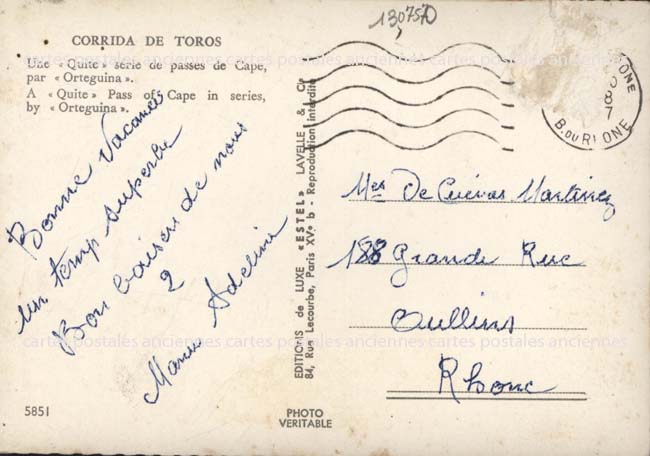 130750
CORRIDA DE TOROS
Une « Quite » série de passes de Cape,
par « Orteguina ».
A « Quite » Pass of Cape in series,
by « Orteguina ».
Bonne Vacances
un temp superbe
Bon baisers de nous
2
Adeline
5851
EDITIONS de LUXE "ESTEL" LAVELLE & Cie
84, Rue Lecourbe, Paris XVe b - Reproduction interdite
PHOTO
VERITABLE
B. DU RHONE
Mrs De Cuevas Martinez
188 Grande Rue
Oullins
Rhone
cartes postales anciennes cartes postales anciennes cartes postales anciennes
cartes postales anciennes cartes postales anciennes cartes postales anciennes